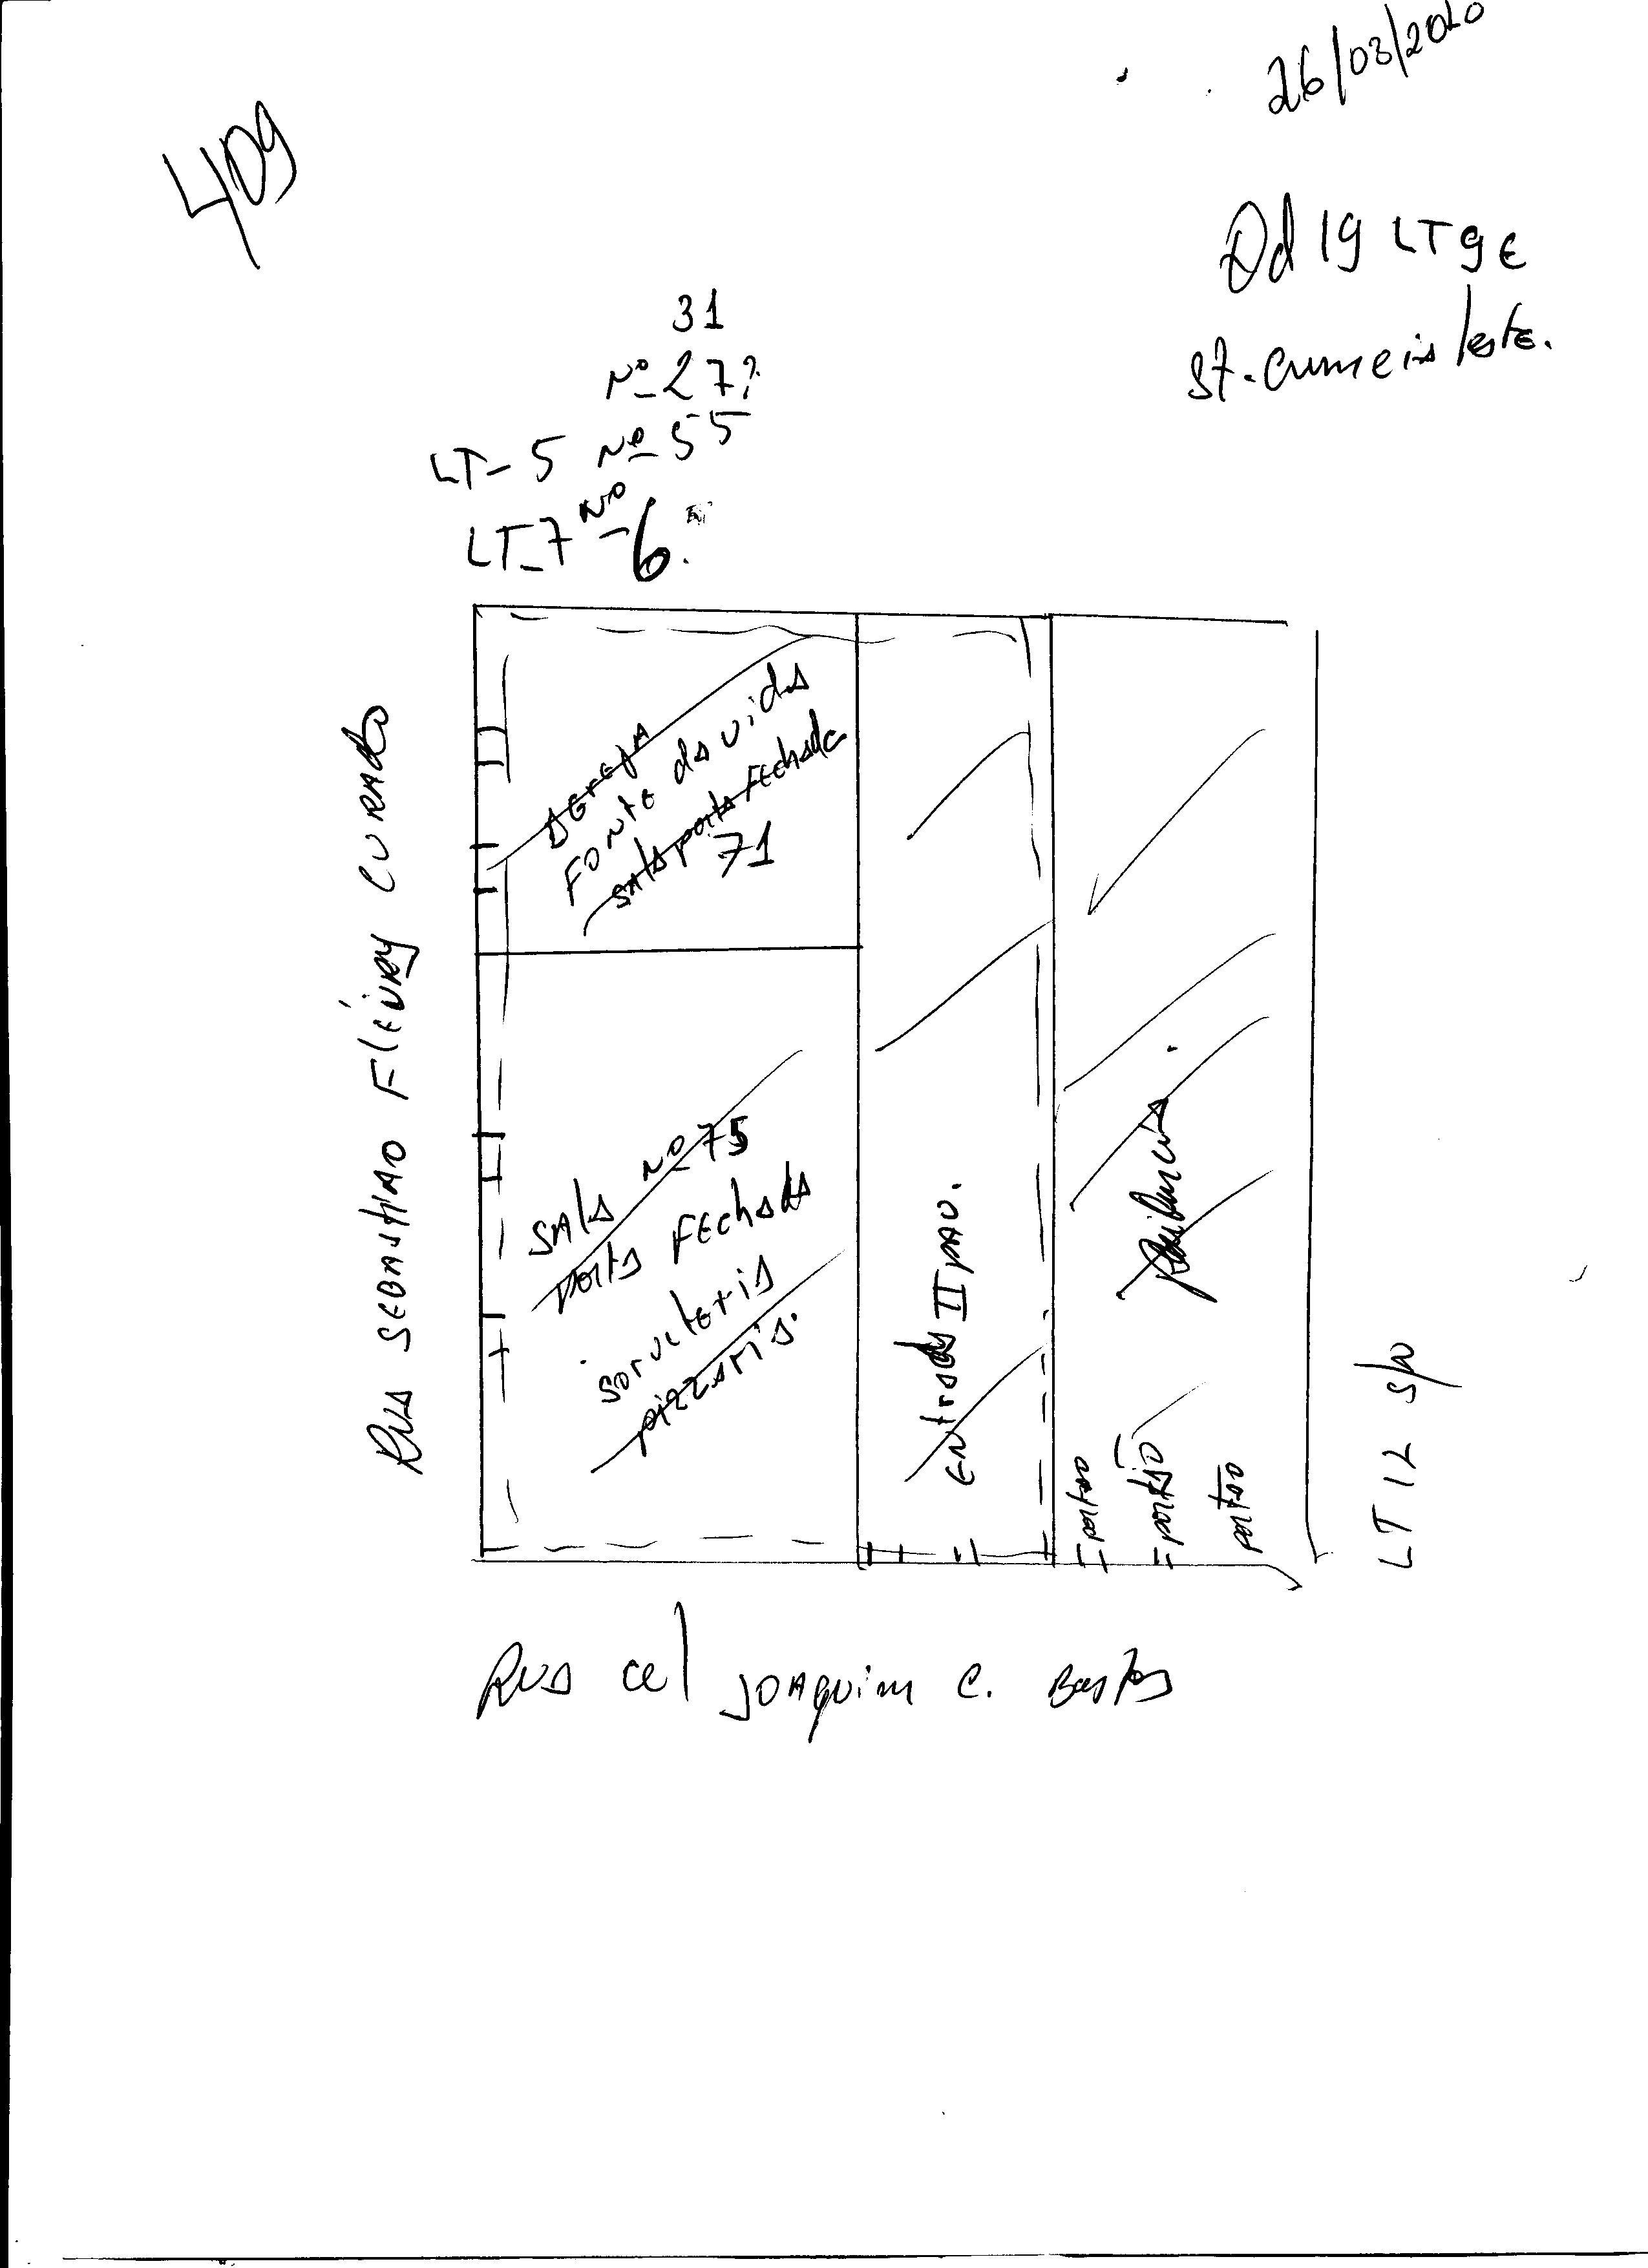 26/03/2020
409
Qd 19 LT 9 E
St. Leste.
31
Nº 27?
LT- 5 Nº 55
LT-7 Nº 6.
IGreJA
FONTE da vida
SAla porta FEchada
71
RUA SEBASTIAO FlEURY CURADO
SAla Nº 75
porta FEchada
sorveteria
pizzaria.
ENtrada II PAV.
Residencia
portao
portão
portão
LT 12
RUA cel JOAQUIM C. Bastos